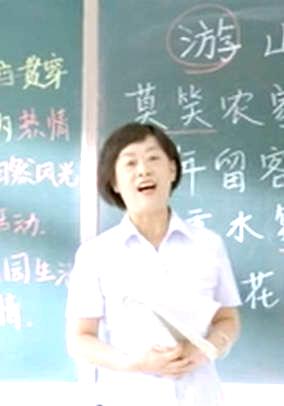 贯穿
热情
自然风光
活动.
园生活
情.
游山
莫笑农家
年留客
水
花